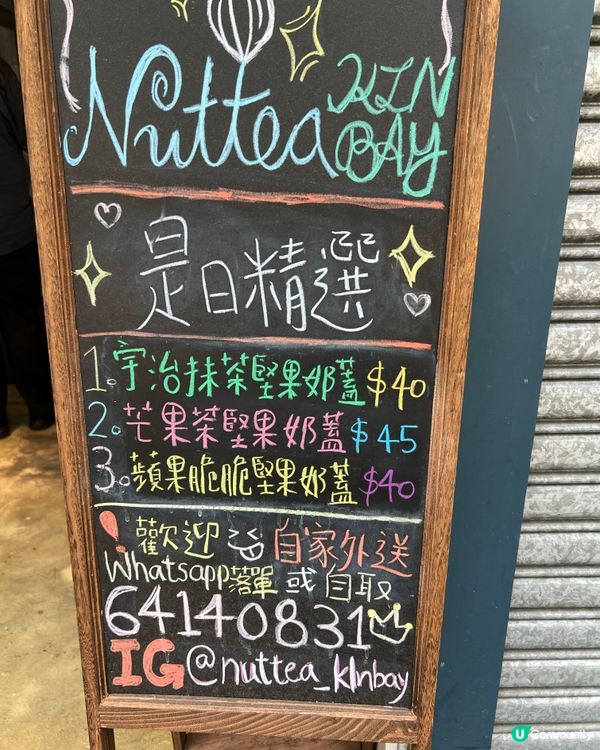 Nuttea KLN
BAY
是日精選
1。宇治抹茶堅果奶蓋 $40
2。芒果茶堅果奶蓋 $45
3。蘋果脆脆堅果奶蓋 $40
! 歡迎 自家外送
Whatsapp落單 或 自取
64140831
IG @nuttea_klnbay
U Community